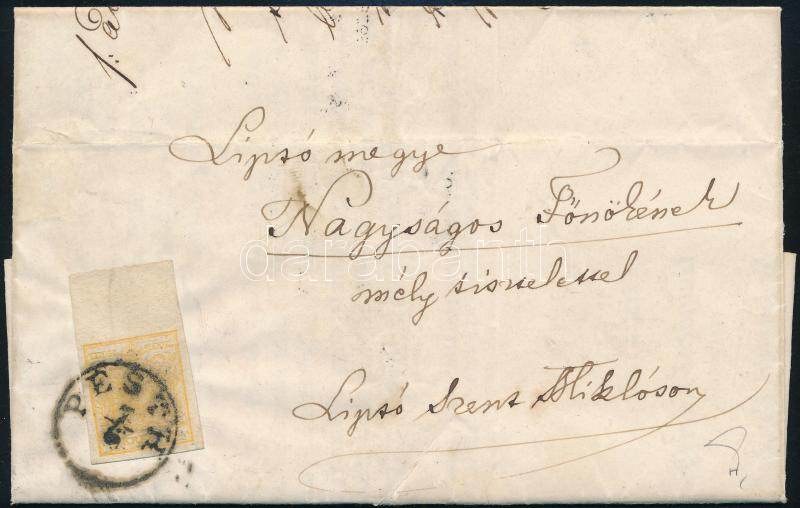 Liptó megye
Nagyságos Főnökének
mély tisztelettel
Liptó Szent Miklóson
PESTH
darabanth